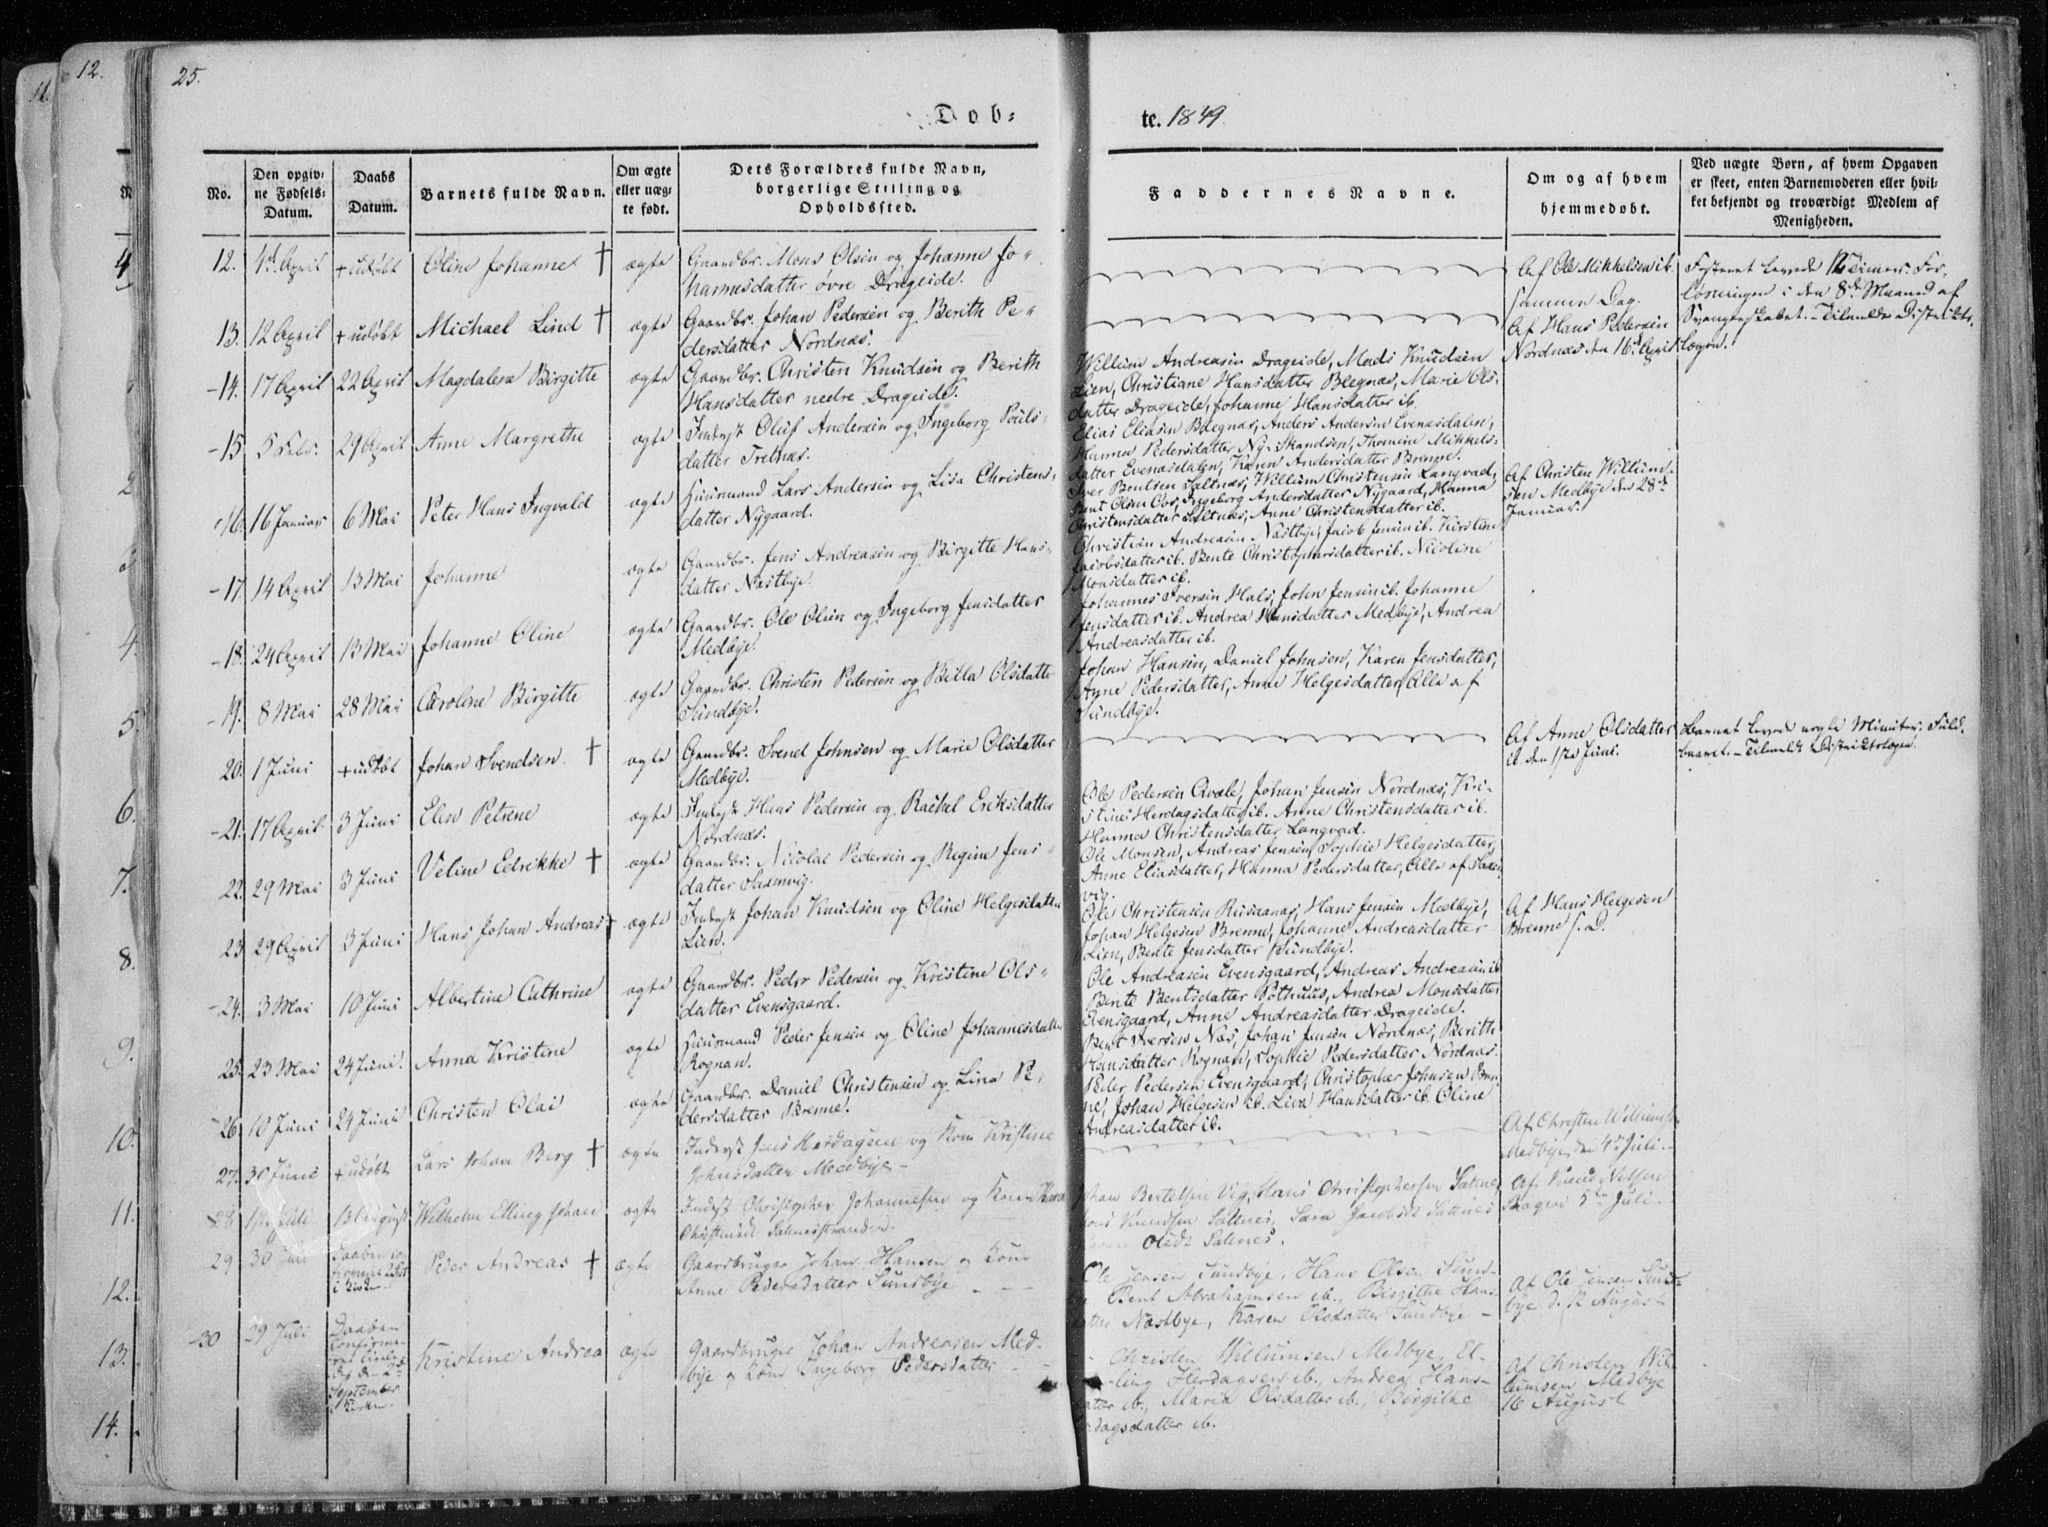 12.
11.
25.
Dob=
te. 1849.
No.
Den opgiv-
ne Fødsels-
Datum.
Daabs
Datum.
Barnets fulde Navn.
Om ægte
eller uæg-
te født.
Dets Forældres fulde Navn,
borgerlige Stilling og
Opholdssted.
Faddernes Navne.
Om og af hvem
hjemmedøbt.
Ved uægte Børn, af hvem Opgaven
er skeet, enten Barnemoderen eller hvil-
ket bekjendt og troværdigt Medlem af
Menigheden.
12. 4de April + udøbt Oline Johanne † ægte Gaardbr. Mons Olsen og Johanne Jo-
hannesdatter øvre Drageide.
Af Ole Mikkelsen ib.
samme Dag.
Fosteret levede 12 Timer. For-
løsningen i den 8de Maaned af
Svangerskabet. - Tilmeldt Distrikts-
lægen.
13. 12 April + udøbt Michael Lind † ægte Gaardbr. Johan Pedersen og Berith Pe-
dersdatter Nordnæs.
Af Hans Pedersen
Nordnæs den 16de April
14. 17 April 22 April Magdalena Birgitte ægte Gaardbr. Christen Knudsen og Berith
Hansdatter nedre Drageide.
Willum Andreasen Drageide, Mads Knudsen
Lien, Christiane Hansdatter Blegnæs, Marie Ols-
datter Drageide, Johanne Hansdatter ib.
15 5 Febr. 29 April Anne Margrethe ægte Inderst Oluf Andersen og Ingeborg Pouls-
datter Tretnæs.
Elias Eliasen Blegnæs, Anders Andersen Evenæsdalen,
Hanna Pedersdatter Ny-Skandsen, Thomine Mikkels-
datter Evenæsdalen, Karen Andersdatter Brenne.
16. 16 Januar 6 Mai Peter Hans Ingvald ægte Huusmand Lars Andersen og Lisa Christens-
datter Nygaard.
Iver Bentsen Saltnæs, Willum Christensen Langvad,
Bent Olsen Os, Ingeborg Andersdatter Nygaard, Hanna
Christensdatter Saltnæs, Anne Christensdatter ib.
Af Christen Willum-
sen Medbye den 28de
Januar.
17. 14 April 13 Mai Johanne ægte Gaardbr. Jens Andreasen og Birgitte Hans-
datter Næstbye.
Christian Andreasen Næstbye, Jacob Jensen ib. Kirstine
Jacobsdatter ib. Bente Christophersdatter ib. Nicoline
Monsdatter ib.
18. 24 April 13 Mai Johanne Oline ægte Gaardbr. Ole Olsen og Ingeborg Jensdatter
Medbye.
Johannes Iversen Hals, John Jensen ib. Johanne
Jensdatter ib. Andrea Hansdatter Medbye, Andrea
Andreasdatter ib.
19. 8 Mai 28 Mai Caroline Birgitte ægte Gaardbr. Christen Pedersen og Billa Olsdatter
Sundbye.
Johan Hansen, Daniel Johnsen, Karen Jensdatter,
Anne Pedersdatter, Anne Helgesdatter, Alle af
Sundbye.
20. 1 Juni + udøbt Johan Svendsen. † ægte Gaardbr. Svend Johnsen og Marie Olsdatter
Medbye.
Af Anne Olsdatter
ib. den 1ste Juni.
Barnet levede nogle Minuter. Fuld-
baaret. - Tilmeldt Distriktslægen.
21. 17 April. 3 Juni Elen Petrine ægte Inderst Hans Pedersen og Rachel Eriksdatter
Nordnæs.
Ole Pedersen Qvæle, Johan Jensen Nordnæs, Kri-
stine Herdagsdatter ib. Anne Christensdatter ib.
Hanna Christensdatter Langvad.
22. 29 Mai 3 Juni Veline Edrikke † ægte Gaardbr. Nicolai Pedersen og Regine Jens-
datter Saxenvig.
Ole Monsen, Andreas Jensen, Sophie Helgesdatter,
Anne Eliasdatter, Hanna Pedersdatter, Alle af Saxen-
vig.
23. 29 April 3 Juni Hans Johan Andreas † ægte Inderst Johan Knudsen og Oline Helgesdatter
Lien.
Ole Christensen Rusaanæs, Hans Jensen Medbye,
Johan Helgesen Brenne, Johanne Andreasdatter
Lien, Bente Jensdatter Sundbye.
Af Hans Helgesen
Brenne s. D.
24. 3 Mai 10 Juni Albertine Cathrine ægte Gaardbr. Peder Pedersen og Kristine Ols-
datter Evensgaard.
Ole Andreasen Evensgaard, Andreas Andreasen ib.
Bente Bentsdatter Pothuus, Andrea Monsdatter
Evensgaard, Anne Andreasdatter Drageide.
25. 23 Mai 24 Juni. Anna Kristine ægte Huusmand Peder Jensen og Oline Johannesdatter
Rognan.
Bent Iversen Næs, Johan Jensen Nordnæs, Berith
Hansdatter Rognan, Sophie Pedersdatter Nordnæs.
26. 10 Juni 24 Juni Christen Olai ægte Gaardbr. Daniel Christensen og Lina Pe-
dersdatter Brenne.
Peder Pedersen Evensgaard, Christopher Johnsen Bren-
ne, Johan Helgesen ib. Liva Hansdatter ib. Oline
Andreasdatter ib.
27. 30 Juni + udøbt Lars Johan Berg † ægte Inderst Jens Herdagsen og Kone Kristine
Johnsdatter Medbye -
Af Christen Willumsen
Medbye den 4de Juli. -
28 Juli 13 August Wilhelm Elling Johan ægte Inderst Christopher Johannesen og Kone Karen
Christensd. Saltnesstranden.
Johan Bertelsen Vig, Hans Christophersen Saltnes,
Knudsen Saltnes, Sara Jacobsd. Saltnes
Olsd. Saltnes.
Af Knud Nilsen
5te Juli.
29. 30 Juli Daaben con-
firmeret
i Kirken.
Peder Andreas † ægte Gaardbruger Johan Hansen og Kone
Anne Pedersdatter Sundbye
Ole Jensen Sundbye, Hans Olsen Sund-
Bent Abrahamsen ib., Birgithe Hans-
datter Næstbye, Karen Olsdatter Sundbye -
Af Ole Jensen Sund-
bye d. 12 August
30 29 Juli Daaben
confirme-
ret
den 2de
September
i Kirken.
Kristine Andrea ægte Gaardbruger Johan Andreasen Med-
bye og Kone Ingeborg Pedersdatter
Christen Willumsen Medbye, El-
ling Herdagsen ib., Andrea Hans-
datter ib., Maria Olsdatter ib., Birgithe
Herdagsdatter ib.
Af Christen Wil-
lumsen Medbye
16 August
4.
2
3.
4.
5.
6.
7.
8.
9.
10.
11.
12.
13.
14.